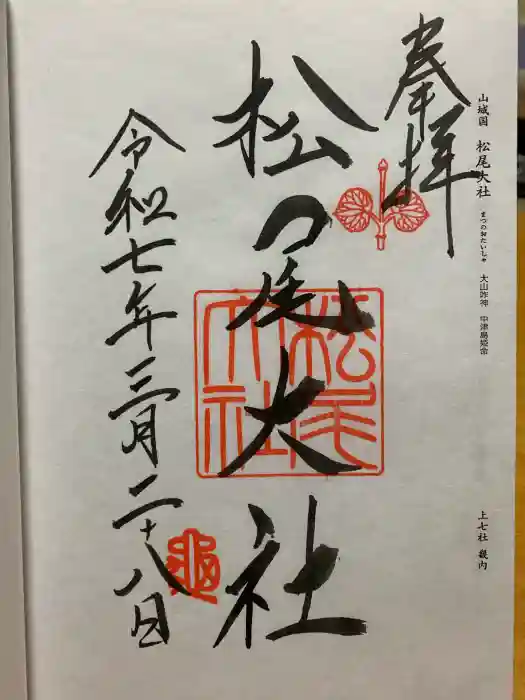 山城国 松尾大社 まつのおたいしゃ 大山咋神 中津島姫命
上七社 畿内
奉拝
松の尾大社
松尾
大社
令和七年三月二十八日